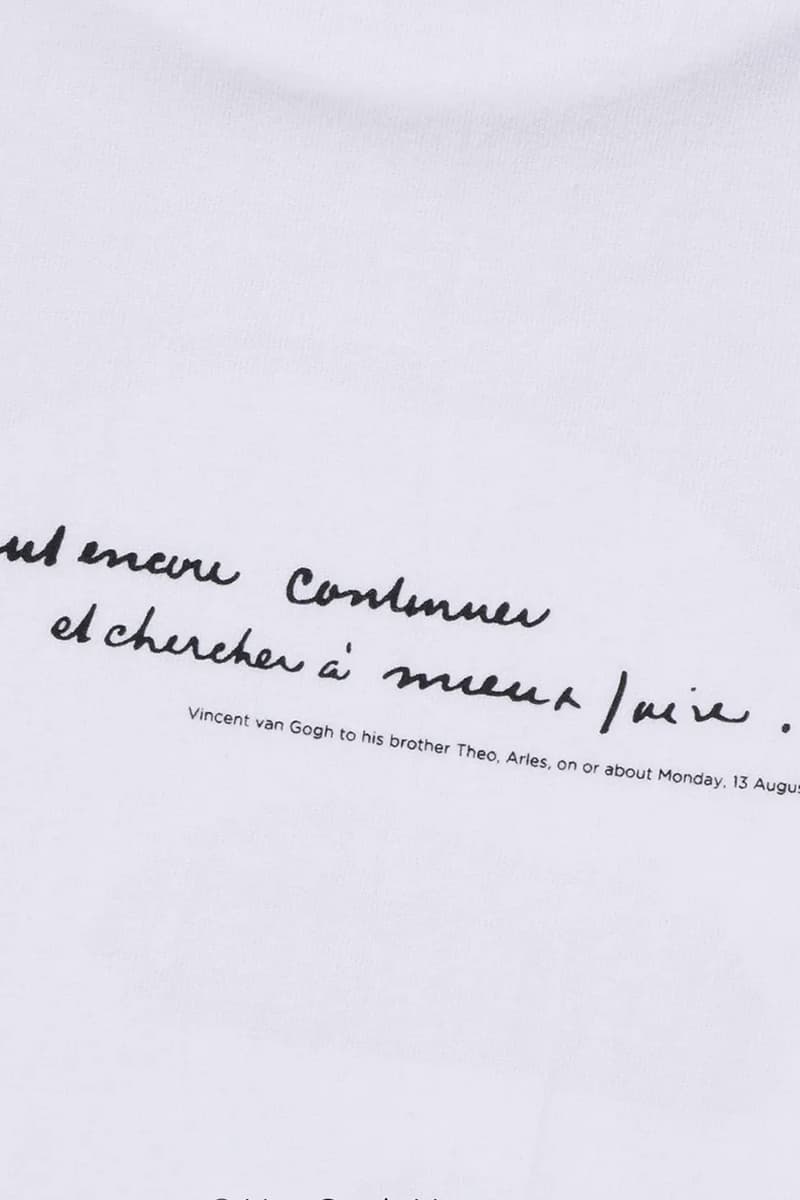 encore continuer
et chercher à mieux faire.
Vincent van Gogh to his brother Theo, Arles, on or about Monday, 13 Augus